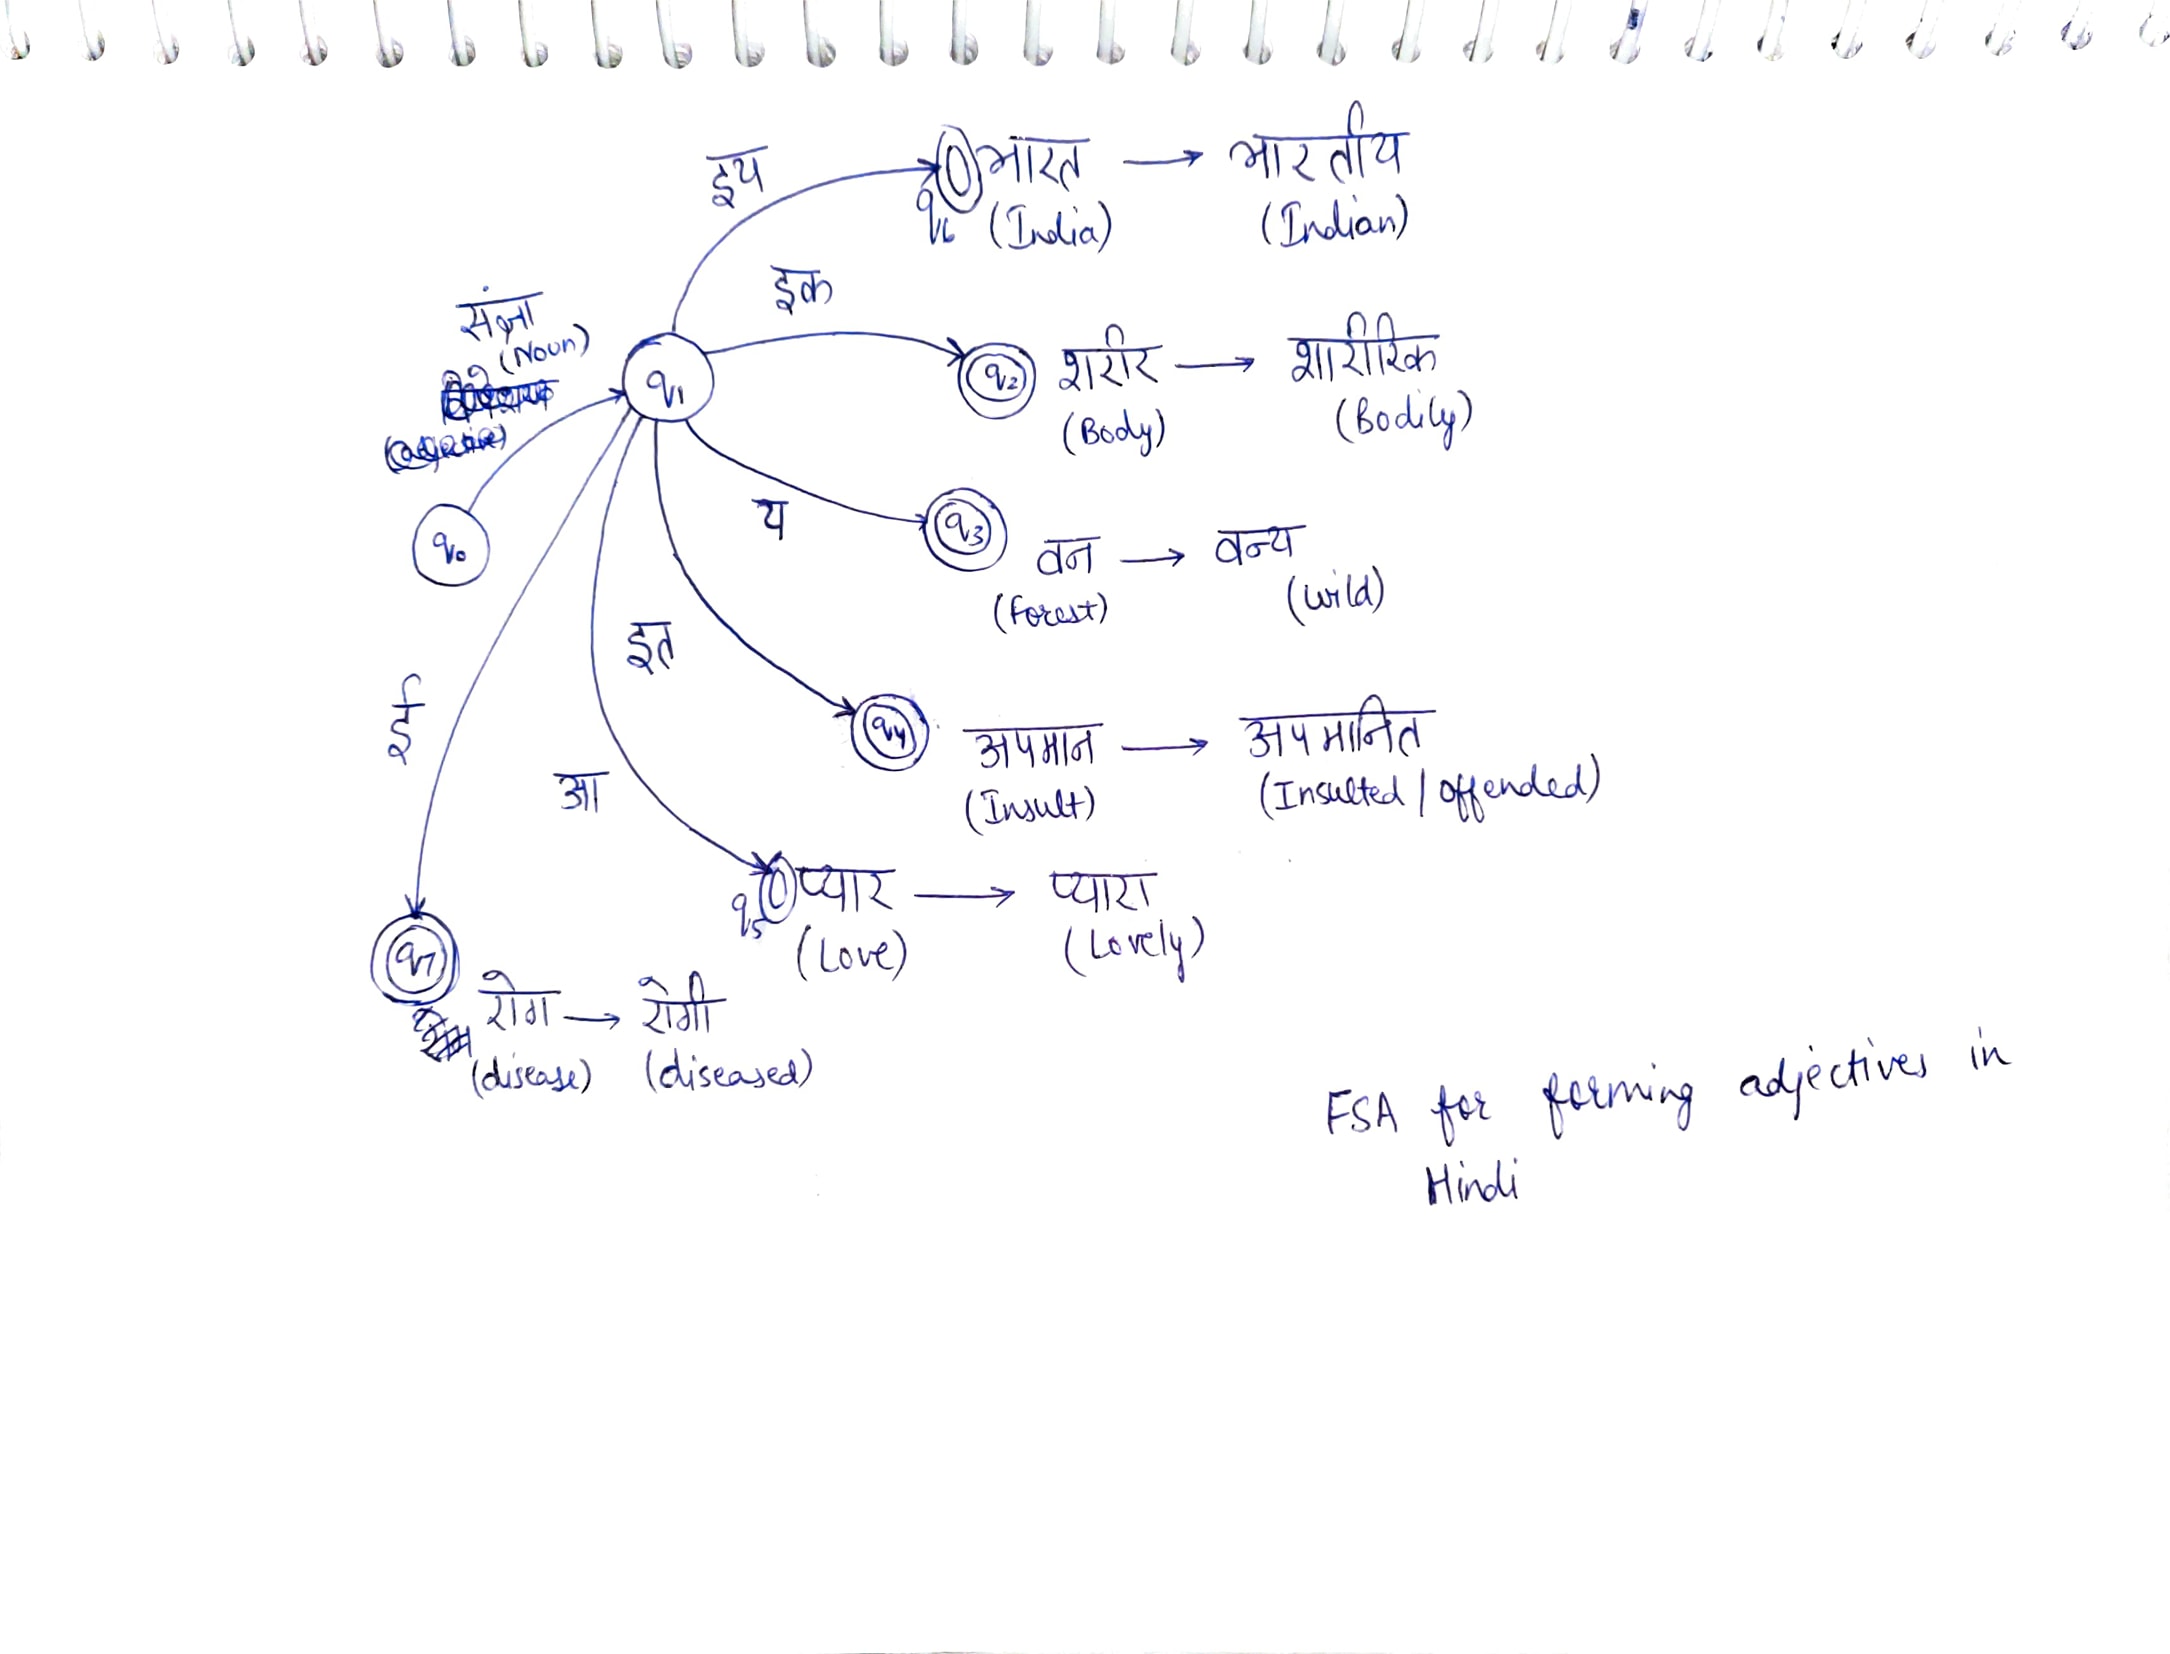 इय
q6
भारत → भारतीय
(India) (Indian)
इक
संज्ञा
(Noun)
q1
q2
शरीर → शारीरिक
(Body) (Bodily)
q0
य
q3
वन → वन्य
(Forest) (wild)
इत
q4
अपमान → अपमानित
(Insult) (Insulted / offended)
ई
आ
q5
प्यार → प्यारा
(Love) (Lovely)
q7
रोग → रोगी
(disease) (diseased)
FSA for forming adjectives in
Hindi